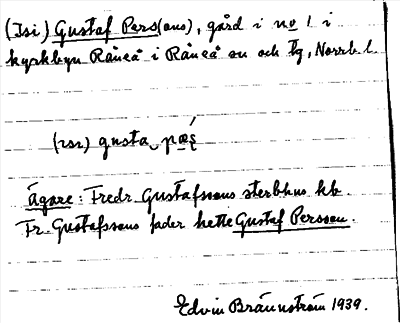 (Isi) Gustaf Pers(ons), gård i no 1 i
kyrkbyn Råneå i Råneå sn och tg, Norrb. l.
gusta
Ägare: Fredr. Gustafssons sterbhus. kb
Fr. Gustafssons fader hette Gustaf Persson.
Edvin Brännström 1939.